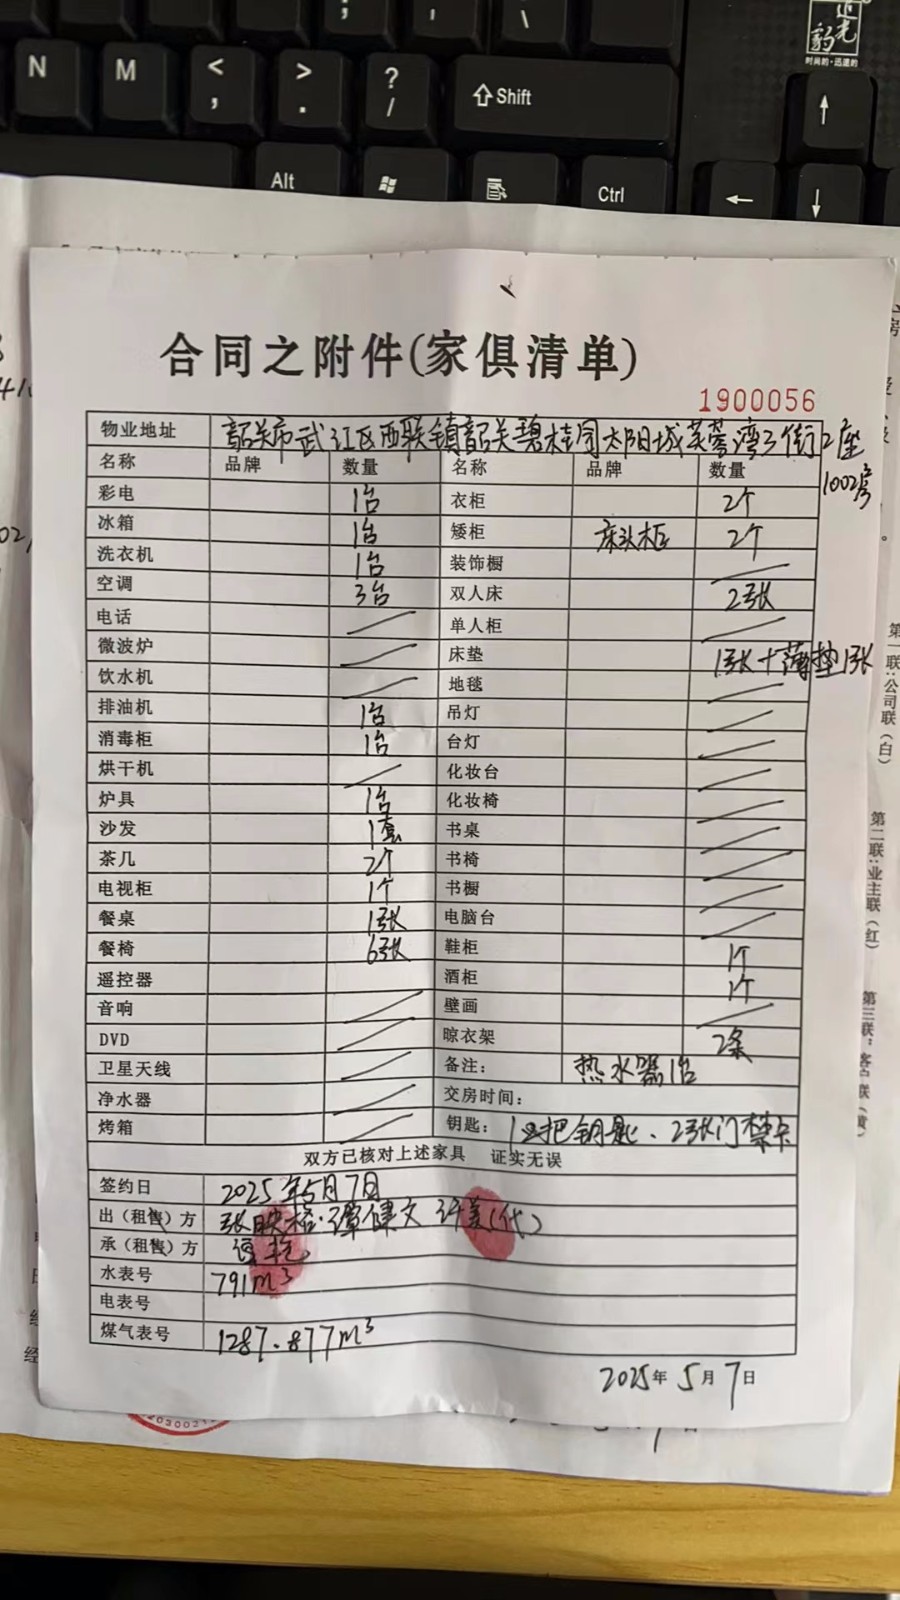 N
M
<
,
>
.
?
/
Shift
Alt
Ctrl
追光
豹
时尚的·迅速的
合同之附件(家俱清单)
1900056
物业地址 韶关市武江区西联镇韶关碧桂园太阳城芙蓉湾3街2座
1002房
名称 品牌 数量 名称 品牌 数量
彩电 1台 衣柜 2个
冰箱 1台 矮柜 床头柜 2个
洗衣机 1台 装饰橱
空调 3台 双人床 2张
电话 单人柜
微波炉 床垫 1张+薄垫1张
饮水机 地毯
排油机 1台 吊灯
消毒柜 1台 台灯
烘干机 化妆台
炉具 1台 化妆椅
沙发 1套 书桌
茶几 2个 书椅
电视柜 1个 书橱
餐桌 1张 电脑台
餐椅 6张 鞋柜 1个
遥控器 酒柜 1个
音响 壁画
DVD 晾衣架 2条
卫星天线 备注: 热水器1台
净水器 交房时间:
烤箱 钥匙: 把钥匙、2张门禁卡
双方已核对上述家具 证实无误
签约日 2025年5月7日
出(租售)方 张映格·谭健文 许美(代)
承(租售)方
水表号 791m³
电表号
煤气表号 1287.877m³
2025年5月7日
第一联:公司联(白)
第二联:业主联(红)
第三联:客户联(黄)